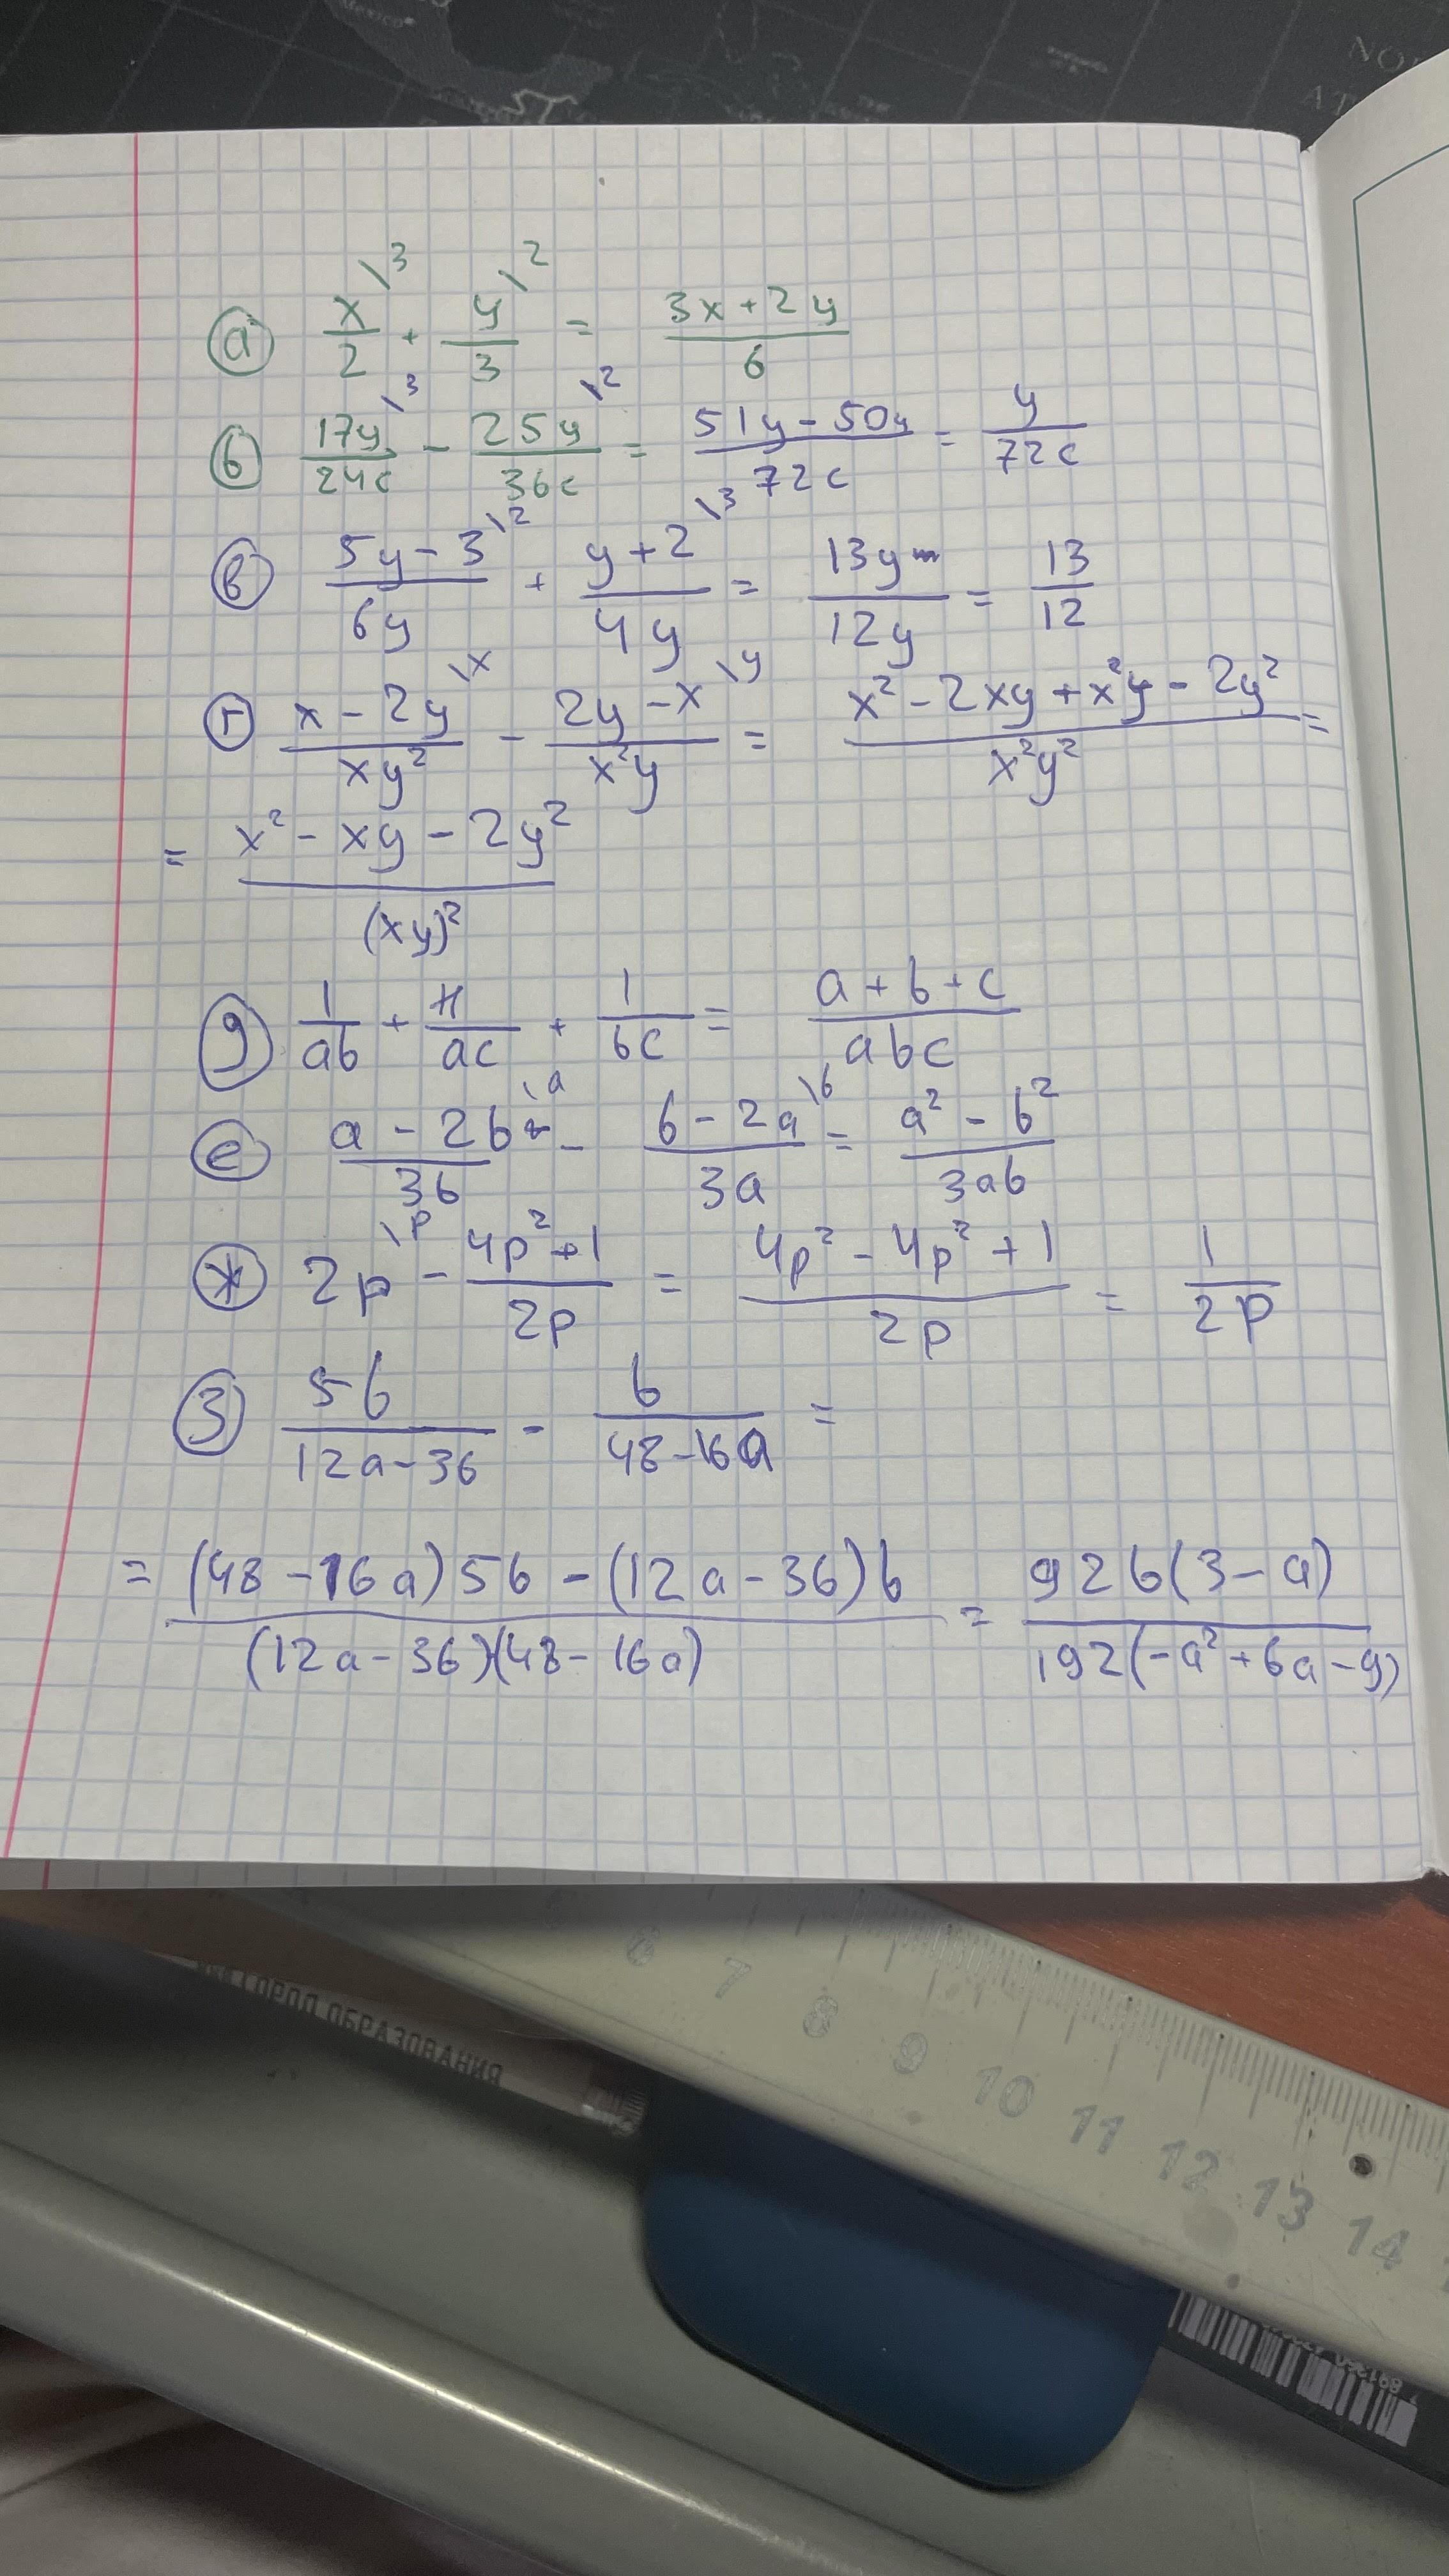 Mexico
NO
AT
а) x/2 \3 + y/3 \2 = (3x+2y)/6
б) 17y/24c \3 - 25y/36c \2 = (51y-50y)/72c = y/72c
в) (5y-3)/6y \2 + (y+2)/4y \3 = 13y/12y = 13/12
г) (x-2y)/xy² \x - (2y-x)/x²y \y = (x²-2xy+x²y-2y²)/x²y² =
= (x²-xy-2y²)/(xy)²
д) 1/ab + 1/ac + 1/bc = (a+b+c)/abc
е) (a-2b)/3b \a - (b-2a)/3a \b = (a²-b²)/3ab
ж) 2p \p - (4p²+1)/2p = (4p²-4p²+1)/2p = 1/2p
з) 5b/(12a-36) - b/(48-16a) =
= ((48-16a)5b-(12a-36)b)/((12a-36)(48-16a)) = 92b(3-a)/192(-a²+6a-9)
6 7 8 9 10 11 12 13 14
ГОРОД ОБРАЗОВАНИЯ